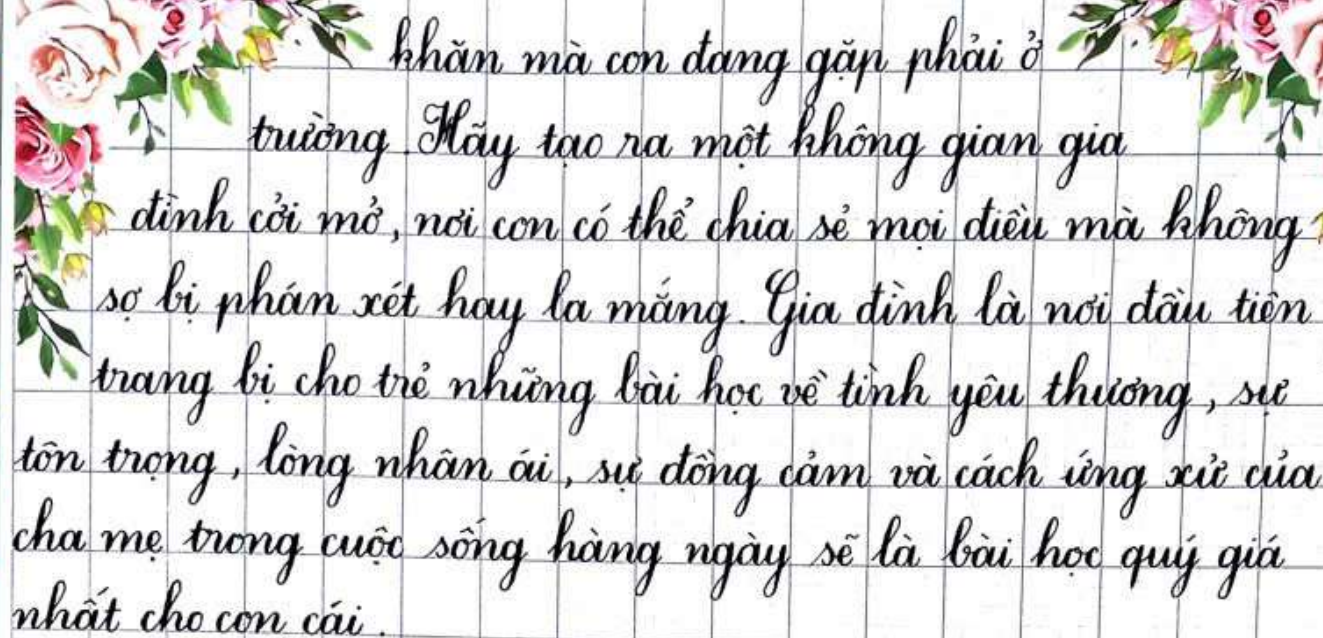 khăn mà con đang gặp phải ở
trường. Hãy tạo ra một không gian gia
đình cởi mở, nơi con có thể chia sẻ mọi điều mà không
sợ bị phán xét hay la mắng. Gia đình là nơi đầu tiên
trang bị cho trẻ những bài học về tình yêu thương, sự
tôn trọng, lòng nhân ái, sự đồng cảm và cách ứng xử của
cha mẹ trong cuộc sống hàng ngày sẽ là bài học quý giá
nhất cho con cái.